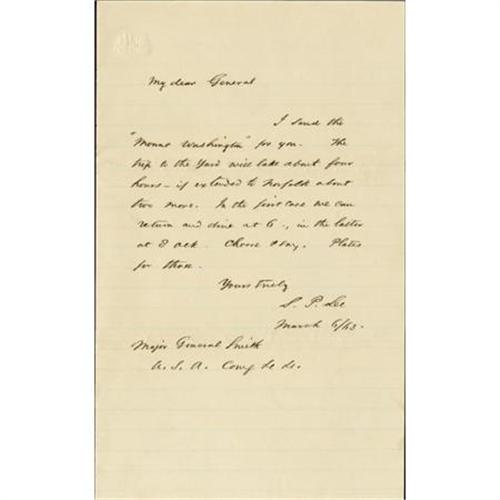 My dear General
I send the
"Mount Washington" for you. The
trip to the Yard will take about four
hours - if extended to Norfolk about
two more. In the first case we can
return and dine at 6-, in the latter
at 8 ock. Choose &
Plates
for those.
Yours truly
S. P. Lee
March 6/63.
Major General Smith
Comg